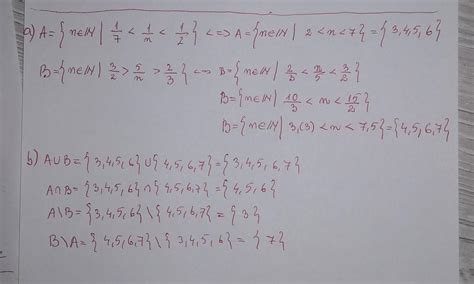 a) A={n∈ℕ| 1/7 < 1/n < 1/2} <=> A={n∈ℕ| 2<n<7}={3,4,5,6}
B={n∈ℕ| 3/2 > 5/n > 2/3} <=> B={n∈ℕ| 2/3 < n/5 < 3/2}
B={n∈ℕ| 10/3 < n < 15/2}
B={n∈ℕ| 3,(3)<n<7,5}={4,5,6,7}
b) A∪B={3,4,5,6}∪{4,5,6,7}={3,4,5,6,7}
A∩B={3,4,5,6}∩{4,5,6,7}={4,5,6}
A\B={3,4,5,6}\{4,5,6,7}={3}
B\A={4,5,6,7}\{3,4,5,6}={7}